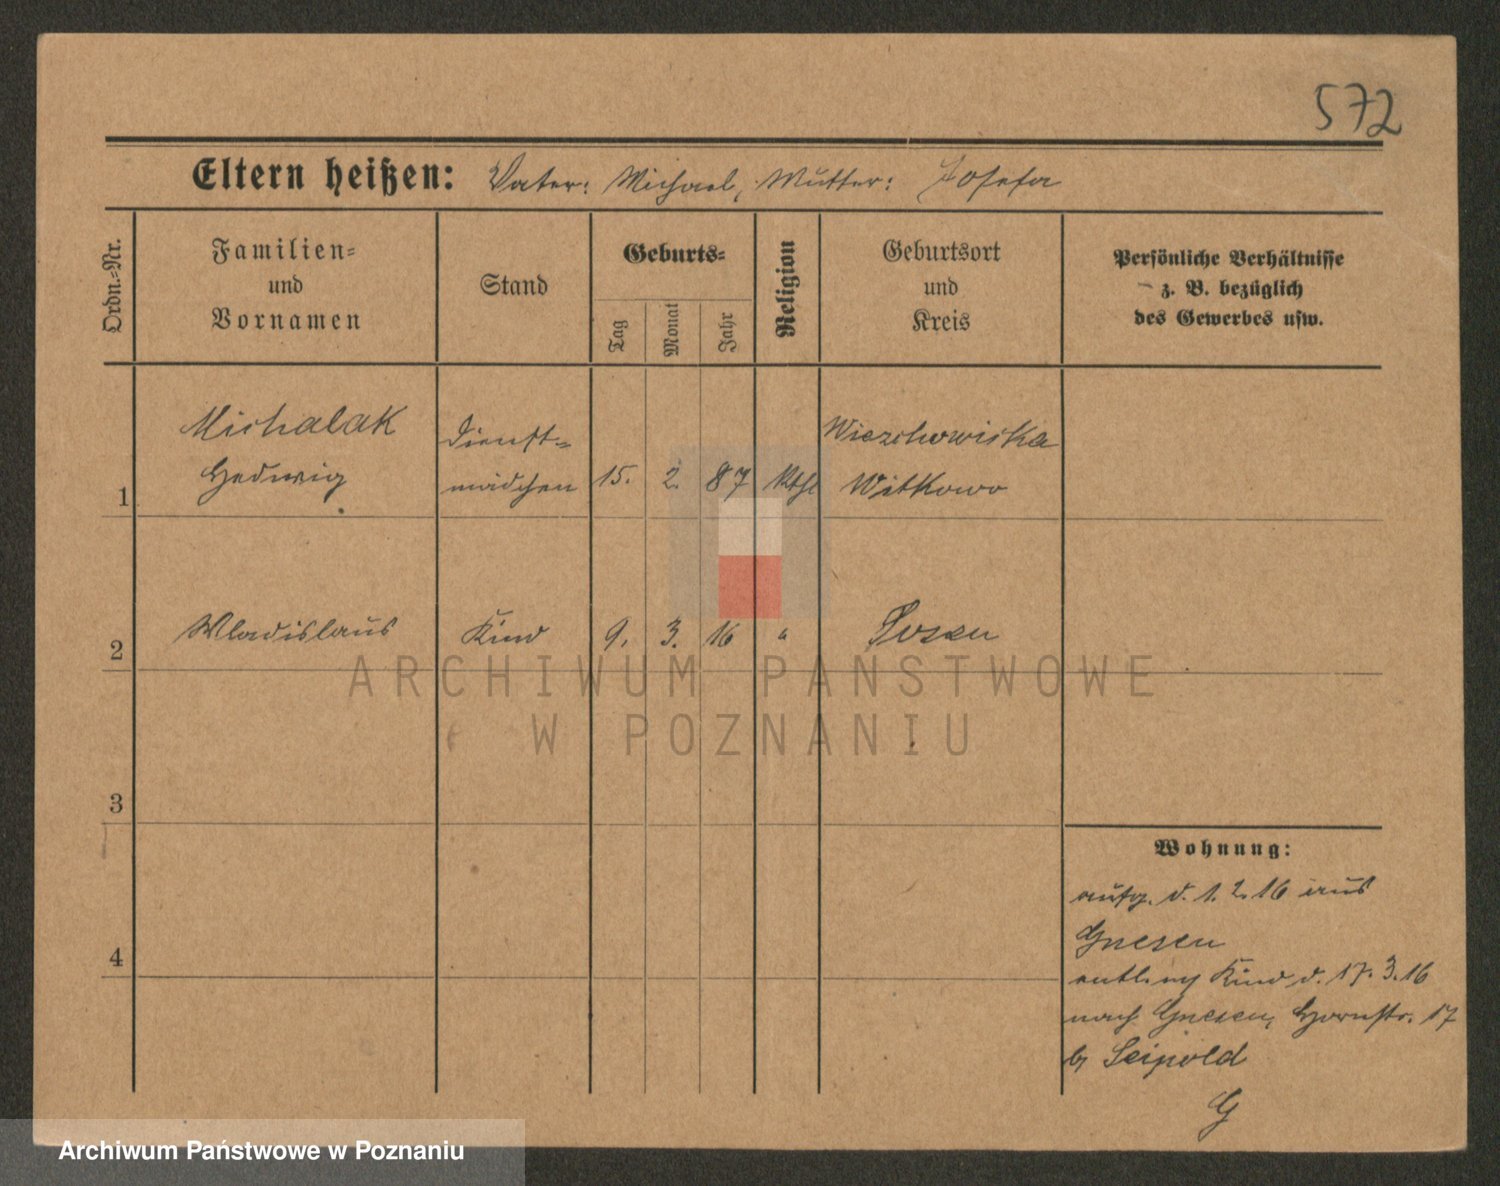 572
Eltern heißen: Vater: Michael, Mutter: Josefa
Ordn.-Nr.
Familien-
und
Vornamen
Stand
Geburts-
Tag
Monat
Jahr
Religion
Geburtsort
und
Kreis
Persönliche Verhältnisse
z. B. bezüglich
des Gewerbes usw.
1
Michalak
Hedwig
Dienst-
mädchen
15. 2. 87 kthl
Wiezchowiska
Witkowo
2 Wladislaus Kind 9. 3. 16 " Posen
3
4
Wohnung:
aufg. d. 1. 2. 16 aus
Gnesen
entl. m Kind d. 17. 3. 16
nach Gnesen, Hornstr. 17
b. Seipold
G
ARCHIWUM PAŃSTWOWE
W POZNANIU
Archiwum Państwowe w Poznaniu